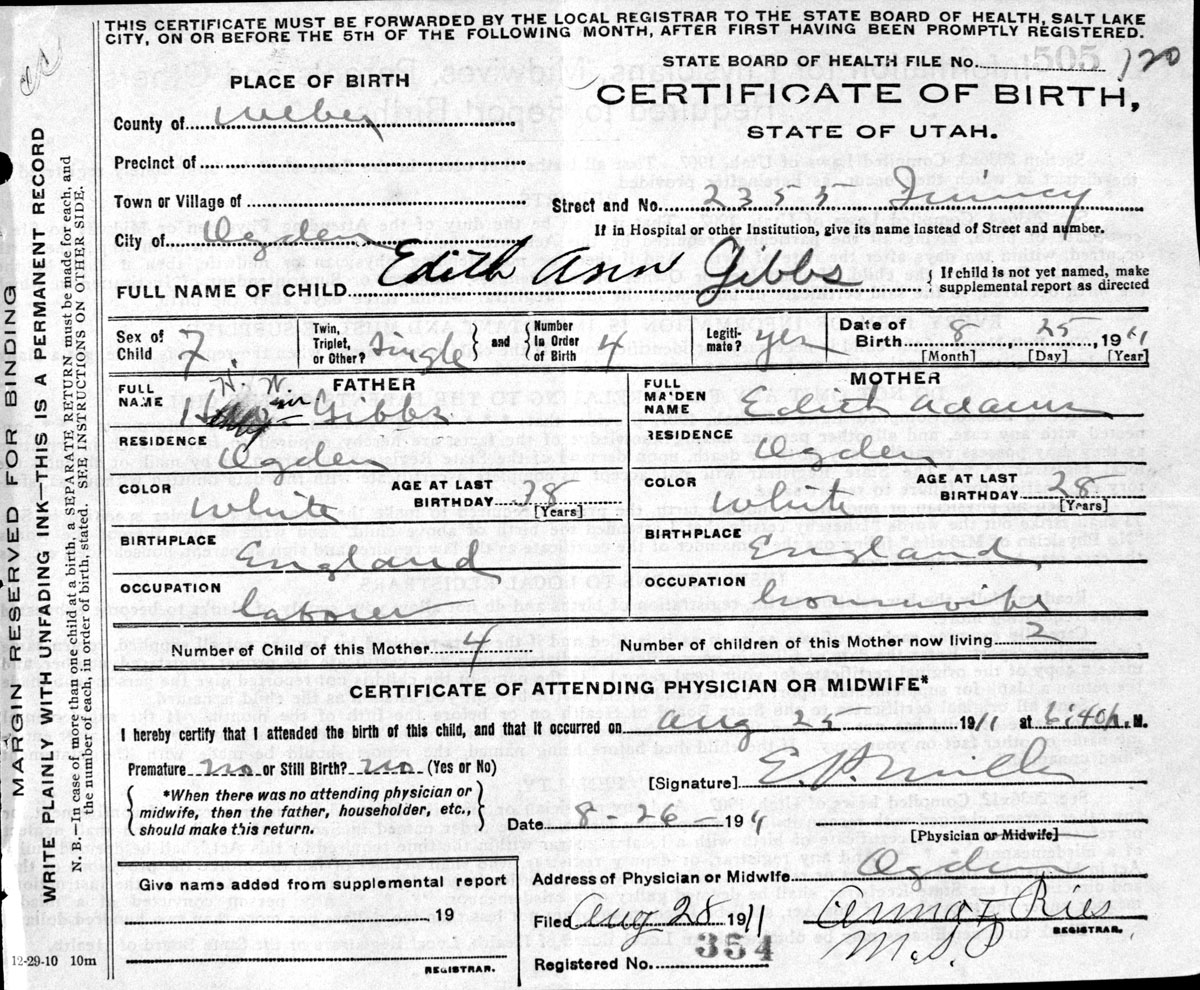 THIS CERTIFICATE MUST BE FORWARDED BY THE LOCAL REGISTRAR TO THE STATE BOARD OF HEALTH, SALT LAKE
CITY, ON OR BEFORE THE 5TH OF THE FOLLOWING MONTH, AFTER FIRST HAVING BEEN PROMPTLY REGISTERED.
STATE BOARD OF HEALTH FILE No. 505 120
PLACE OF BIRTH
CERTIFICATE OF BIRTH,
STATE OF UTAH.
County of Weber
Precinct of
Town or Village of
Street and No. 2355 Quincy
City of Ogden
If in Hospital or other Institution, give its name instead of Street and number.
FULL NAME OF CHILD Edith Ann Gibbs
{ If child is not yet named, make
supplemental report as directed
Sex of Child F
Twin, Triplet, or Other? Single and { Number In Order of Birth 4
Legiti-mate? yes
Date of Birth 8 25 1911
[Month] [Day] [Year]
FATHER
FULL NAME Gibbs
RESIDENCE Ogden
COLOR White
AGE AT LAST BIRTHDAY 38
[Years]
BIRTHPLACE England
OCCUPATION Laborer
MOTHER
FULL MAIDEN NAME Edith Adams
RESIDENCE Ogden
COLOR White
AGE AT LAST BIRTHDAY 28
[Years]
BIRTHPLACE England
OCCUPATION housewife
Number of Child of this Mother 4
Number of children of this Mother now living 2
CERTIFICATE OF ATTENDING PHYSICIAN OR MIDWIFE*
I hereby certify that I attended the birth of this child, and that it occurred Aug 25 1911 at 6:40 A. M.
Premature no or Still Birth? no (Yes or No)
[Signature]
{ *When there was no attending physician or
midwife, then the father, householder, etc.,
should make this return. }
Date 8-26- 1911
[Physician or Midwife]
Give name added from supplemental report
19
REGISTRAR.
Address of Physician or Midwife Ogden
Filed Aug 28 1911
REGISTRAR.
Registered No. 354
12-29-10 10m
MARGIN RESERVED FOR BINDING
WRITE PLAINLY WITH UNFADING INK—THIS IS A PERMANENT RECORD
N. B.—In case of more than one child at a birth, a SEPARATE RETURN must be made for each, and
the number of each, in order of birth, stated. SEE INSTRUCTIONS ON OTHER SIDE.